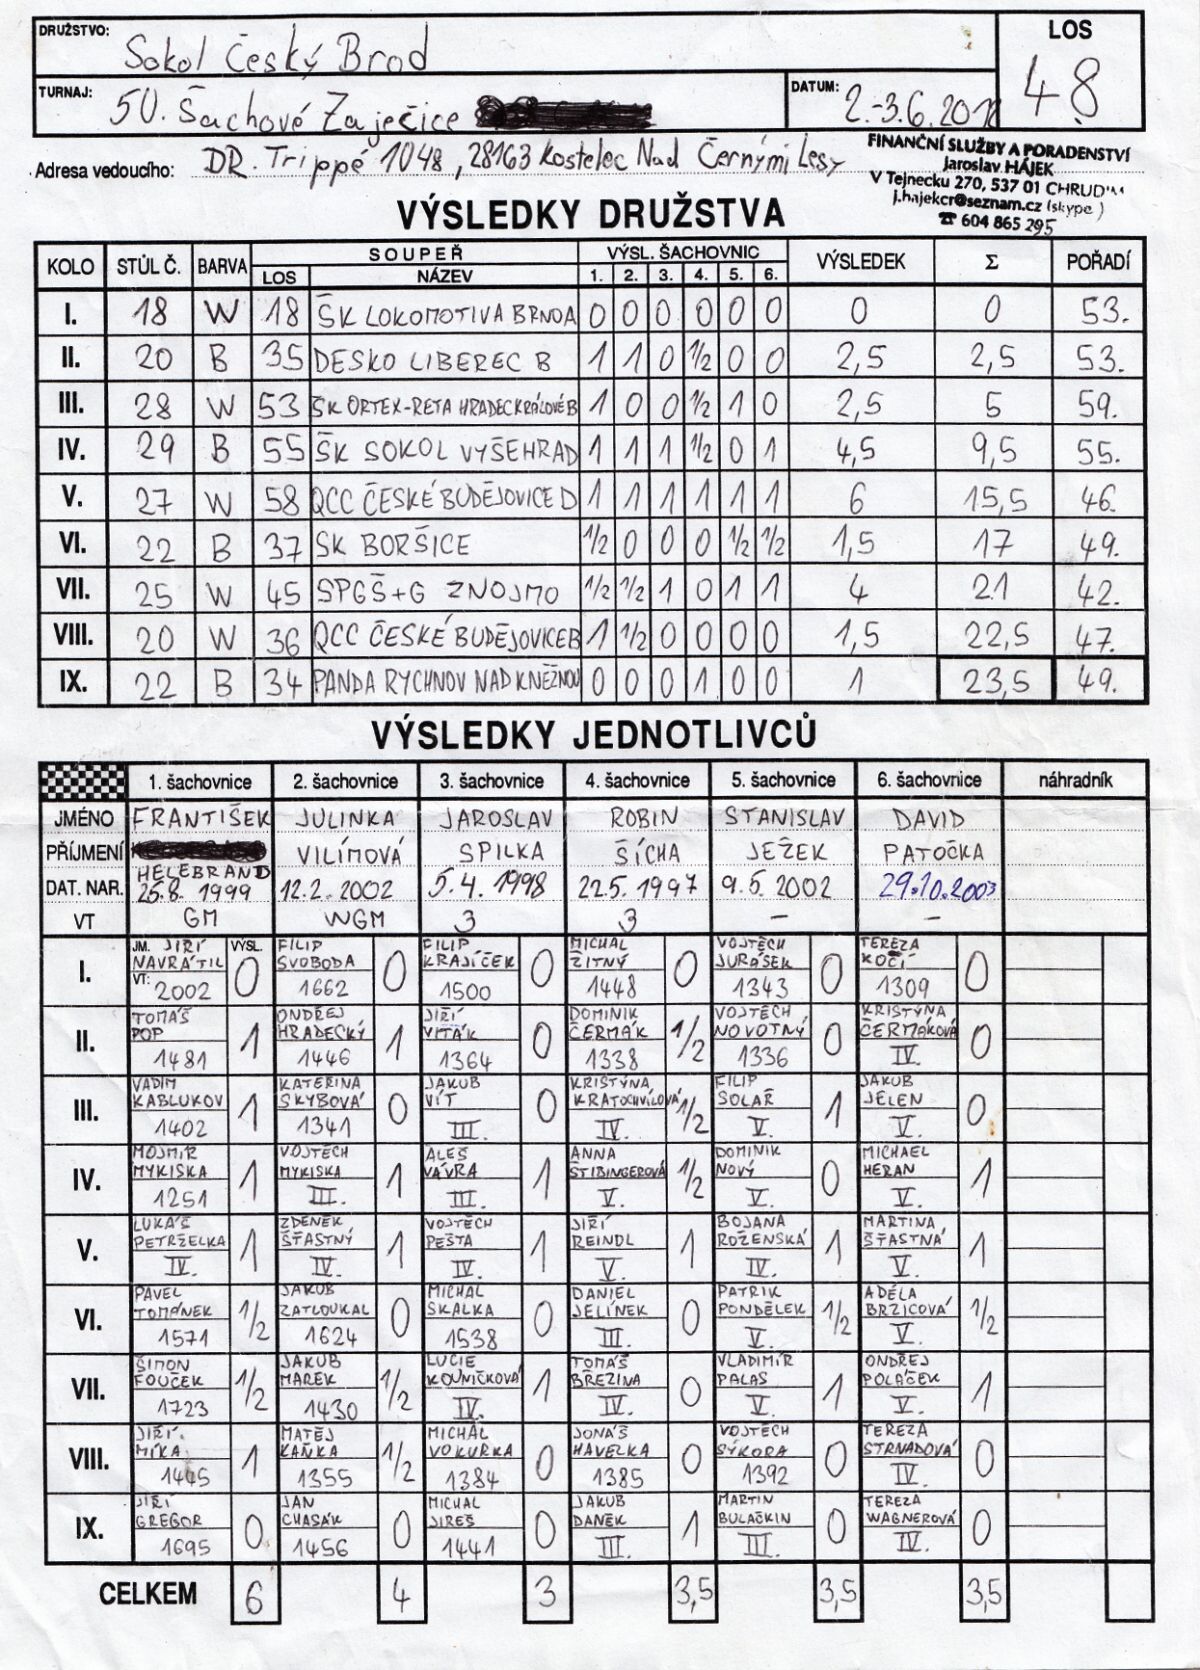 DRUŽSTVO: Sokol Český Brod
LOS 48
TURNAJ: 50. Šachové Zaječice
DATUM: 2.-3.6.2012
Adresa vedoucího: DR. Trippé 1048, 28163 Kostelec Nad Černými Lesy
FINANČNÍ SLUŽBY A PORADENSTVÍ
Jaroslav HÁJEK
V Tejnecku 270, 537 01 CHRUDIM
j.hajekcr@seznam.cz (skype)
☎ 604 865 295
VÝSLEDKY DRUŽSTVA
KOLO STŮL Č. BARVA SOUPEŘ VÝSL. ŠACHOVNIC VÝSLEDEK Σ POŘADÍ
LOS NÁZEV 1. 2. 3. 4. 5. 6.
I. 18 W 18 ŠK LOKOMOTIVA BRNO A 0 0 0 0 0 0 0 0 53.
II. 20 B 35 DESKO LIBEREC B 1 1 0 1/2 0 0 2,5 2,5 53.
III. 28 W 53 ŠK ORTEX-RETA HRADEC KRÁLOVÉ B 1 0 0 1/2 1 0 2,5 5 59.
IV. 29 B 55 ŠK SOKOL VYŠEHRAD 1 1 1 1/2 0 1 4,5 9,5 55.
V. 27 W 58 QCC ČESKÉ BUDĚJOVICE D 1 1 1 1 1 1 6 15,5 46.
VI. 22 B 37 SK BORŠICE 1/2 0 0 0 1/2 1/2 1,5 17 49.
VII. 25 W 45 SPGŠ+G ZNOJMO 1/2 1/2 1 0 1 1 4 21 42.
VIII. 20 W 36 QCC ČESKÉ BUDĚJOVICE B 1 1/2 0 0 0 0 1,5 22,5 47.
IX. 22 B 34 PANDA RYCHNOV NAD KNĚŽNOU 0 0 0 1 0 0 1 23,5 49.
VÝSLEDKY JEDNOTLIVCŮ
1. šachovnice 2. šachovnice 3. šachovnice 4. šachovnice 5. šachovnice 6. šachovnice náhradník
JMÉNO FRANTIŠEK JULINKA JAROSLAV ROBIN STANISLAV DAVID
PŘÍJMENÍ HELEBRAND VILÍMOVÁ SPILKA ŠÍCHA JEŽEK PATOČKA
DAT. NAR. 25.8. 1999 12.2. 2002 5.4. 1998 22.5. 1997 9.5. 2002 29.10.2003
VT GM WGM 3 3 – –
JM. JIŘÍ VÝSL. FILIP FILIP MICHAL VOJTĚCH TEREZA
I. NAVRÁTIL 0 SVOBODA 0 KRAJÍČEK 0 ŽITNÝ 0 JURÁSEK 0 KOČÍ 0
VT: 2002 1662 1500 1448 1343 1309
TOMÁŠ ONDŘEJ JIŘÍ DOMINIK VOJTĚCH KRISTÝNA
II. POP 1 HRADECKÝ 1 VITÁK 0 ČERMÁK 1/2 NOVOTNÝ 0 ČERMÁKOVÁ 0
1481 1446 1364 1338 1336 IV.
VADIM KATEŘINA JAKUB KRISTÝNA FILIP JAKUB
III. KABLUKOV 1 SKYBOVÁ 0 VÍT 0 KRATOCHVÍLOVÁ 1/2 SOLAŘ 1 JELEN 0
1402 1341 III. IV. V. V.
MOJMÍR VOJTĚCH ALEŠ ANNA DOMINIK MICHAEL
IV. MYKISKA 1 MYKISKA 1 VÁVRA 1 STIBINGEROVÁ 1/2 NOVÝ 0 HERAN 1
1251 III. III. V. V. V.
LUKÁŠ ZDENĚK VOJTĚCH JIŘÍ BOJANA MARTINA
V. PETRŽELKA 1 ŠŤASTNÝ 1 PEŠTA 1 REINDL 1 ROŽENSKÁ 1 ŠŤASTNÁ 1
IV. IV. IV. V. IV. V.
PAVEL JAKUB MICHAL DANIEL PATRIK ADÉLA
VI. TOMÁNEK 1/2 ZATLOUKAL 0 SKALKA 0 JELÍNEK 0 PONDĚLEK 1/2 BRZICOVÁ 1/2
1571 1624 1538 III. V. V.
ŠIMON JAKUB LUCIE TOMÁŠ VLADIMÍR ONDŘEJ
VII. FOUČEK 1/2 MAREK 1/2 KOUNÍČKOVÁ 1 BŘEZINA 0 PALAS 1 POLÁČEK 1
1723 1430 IV. IV. V. V.
JIŘÍ MATĚJ MICHAL JONÁŠ VOJTĚCH TEREZA
VIII. MÍKA 1 KAŇKA 1/2 VOKURKA 0 HAVELKA 0 SÝKORA 0 STRNADOVÁ 0
1445 1355 1384 1385 1392 IV.
JIŘÍ JAN MICHAL JAKUB MARTIN TEREZA
IX. GREGOR 0 CHASÁK 0 JIREŠ 0 DANĚK 1 BULAČKIN 0 WAGNEROVÁ 0
1695 1456 1441 III. III. IV.
CELKEM 6 4 3 3,5 3,5 3,5